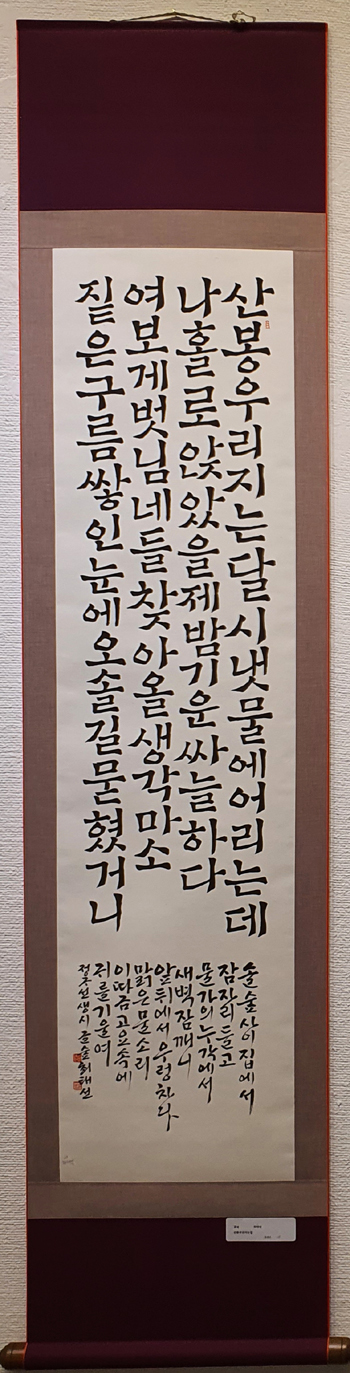 산봉우리지는달시냇물에어리는데
나홀로앉았을제밤기운싸늘하다
여보게벗님네들찾아올생각마소
짙은구름쌓인눈에오솔길묻혔거니
솔숲산이집에서
잠자리들고
물가의누각에서
새벽잠깨니
앞뒤에서우렁찬
맑은물소리
이따금공요속에
귀를기울여